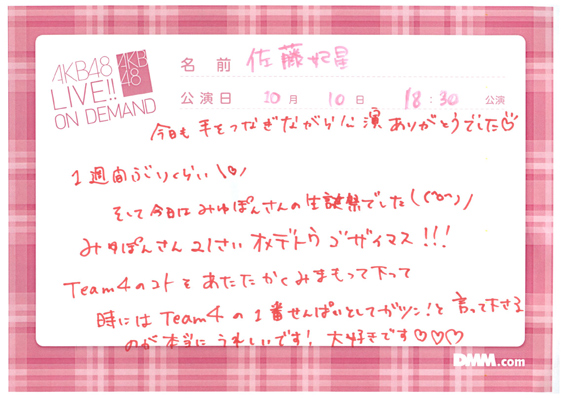 AKB48
LIVE!!
ON DEMAND
AKB
48
名前 佐藤妃星
公演日 10月 10日 18:30 公演
今日も手をつなぎながら公演ありがとうでした♡
1週間ぶりくらい
そして今日はみゆぽんさんの生誕祭でした
みゆぽんさん21さいオメデトウゴザイマス!!!
Team4のコトをあたたかくみまもって下って
時にはTeam4の1番せんぱいとしてガツン!と言って下さる
のが本当にうれしいです! 大好きです♡♡♡
DMM.com